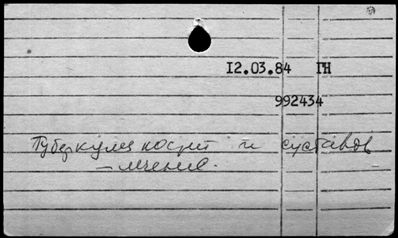 12.03.84 ГН
992434
Туберкулез костей и суставов
– лечение.